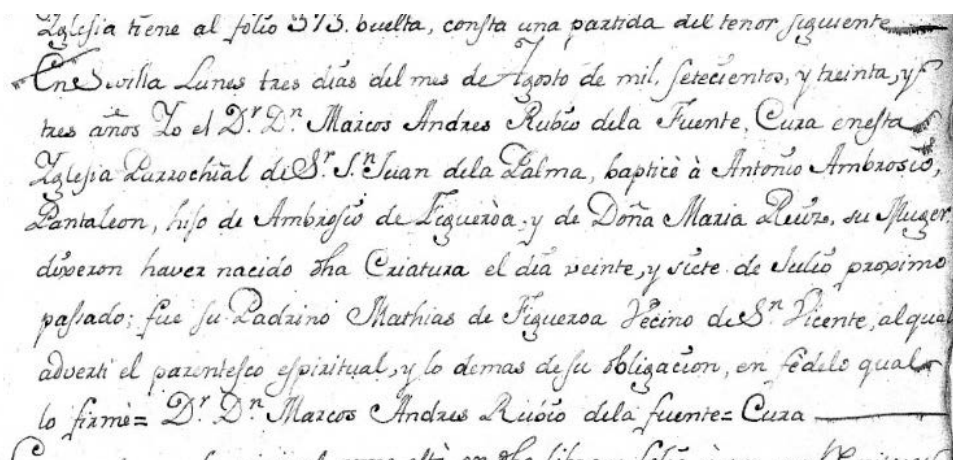 Yglesia tiene al folio 373. buelta, consta una partida del tenor siguiente
En Sevilla Lunes tres dias del mes de Agosto de mil, setecientos, y treinta, y
tres años Yo el D.r D.n Marcos Andres Rubio dela Fuente, Cura enesta
Yglesia Parrochial de S.r S.n Juan dela Palma, bapticè à Antonio Ambrosio,
Pantaleon, hijo de Ambrosio de Figueròa, y de Doña Maria Ruiz, su Muger
dixeron haver nacido dha Criatura el dia veinte, y siete de Julio proximo
passado; fue su Padrino Mathias de Figueroa Vecino de S.n Vicente, al qual
adverti el parentesco espiritual, y lo demas desu obligacion, en fè delo qual
lo firmè= D.r D.n Marcos Andres Rubio dela fuente= Cura